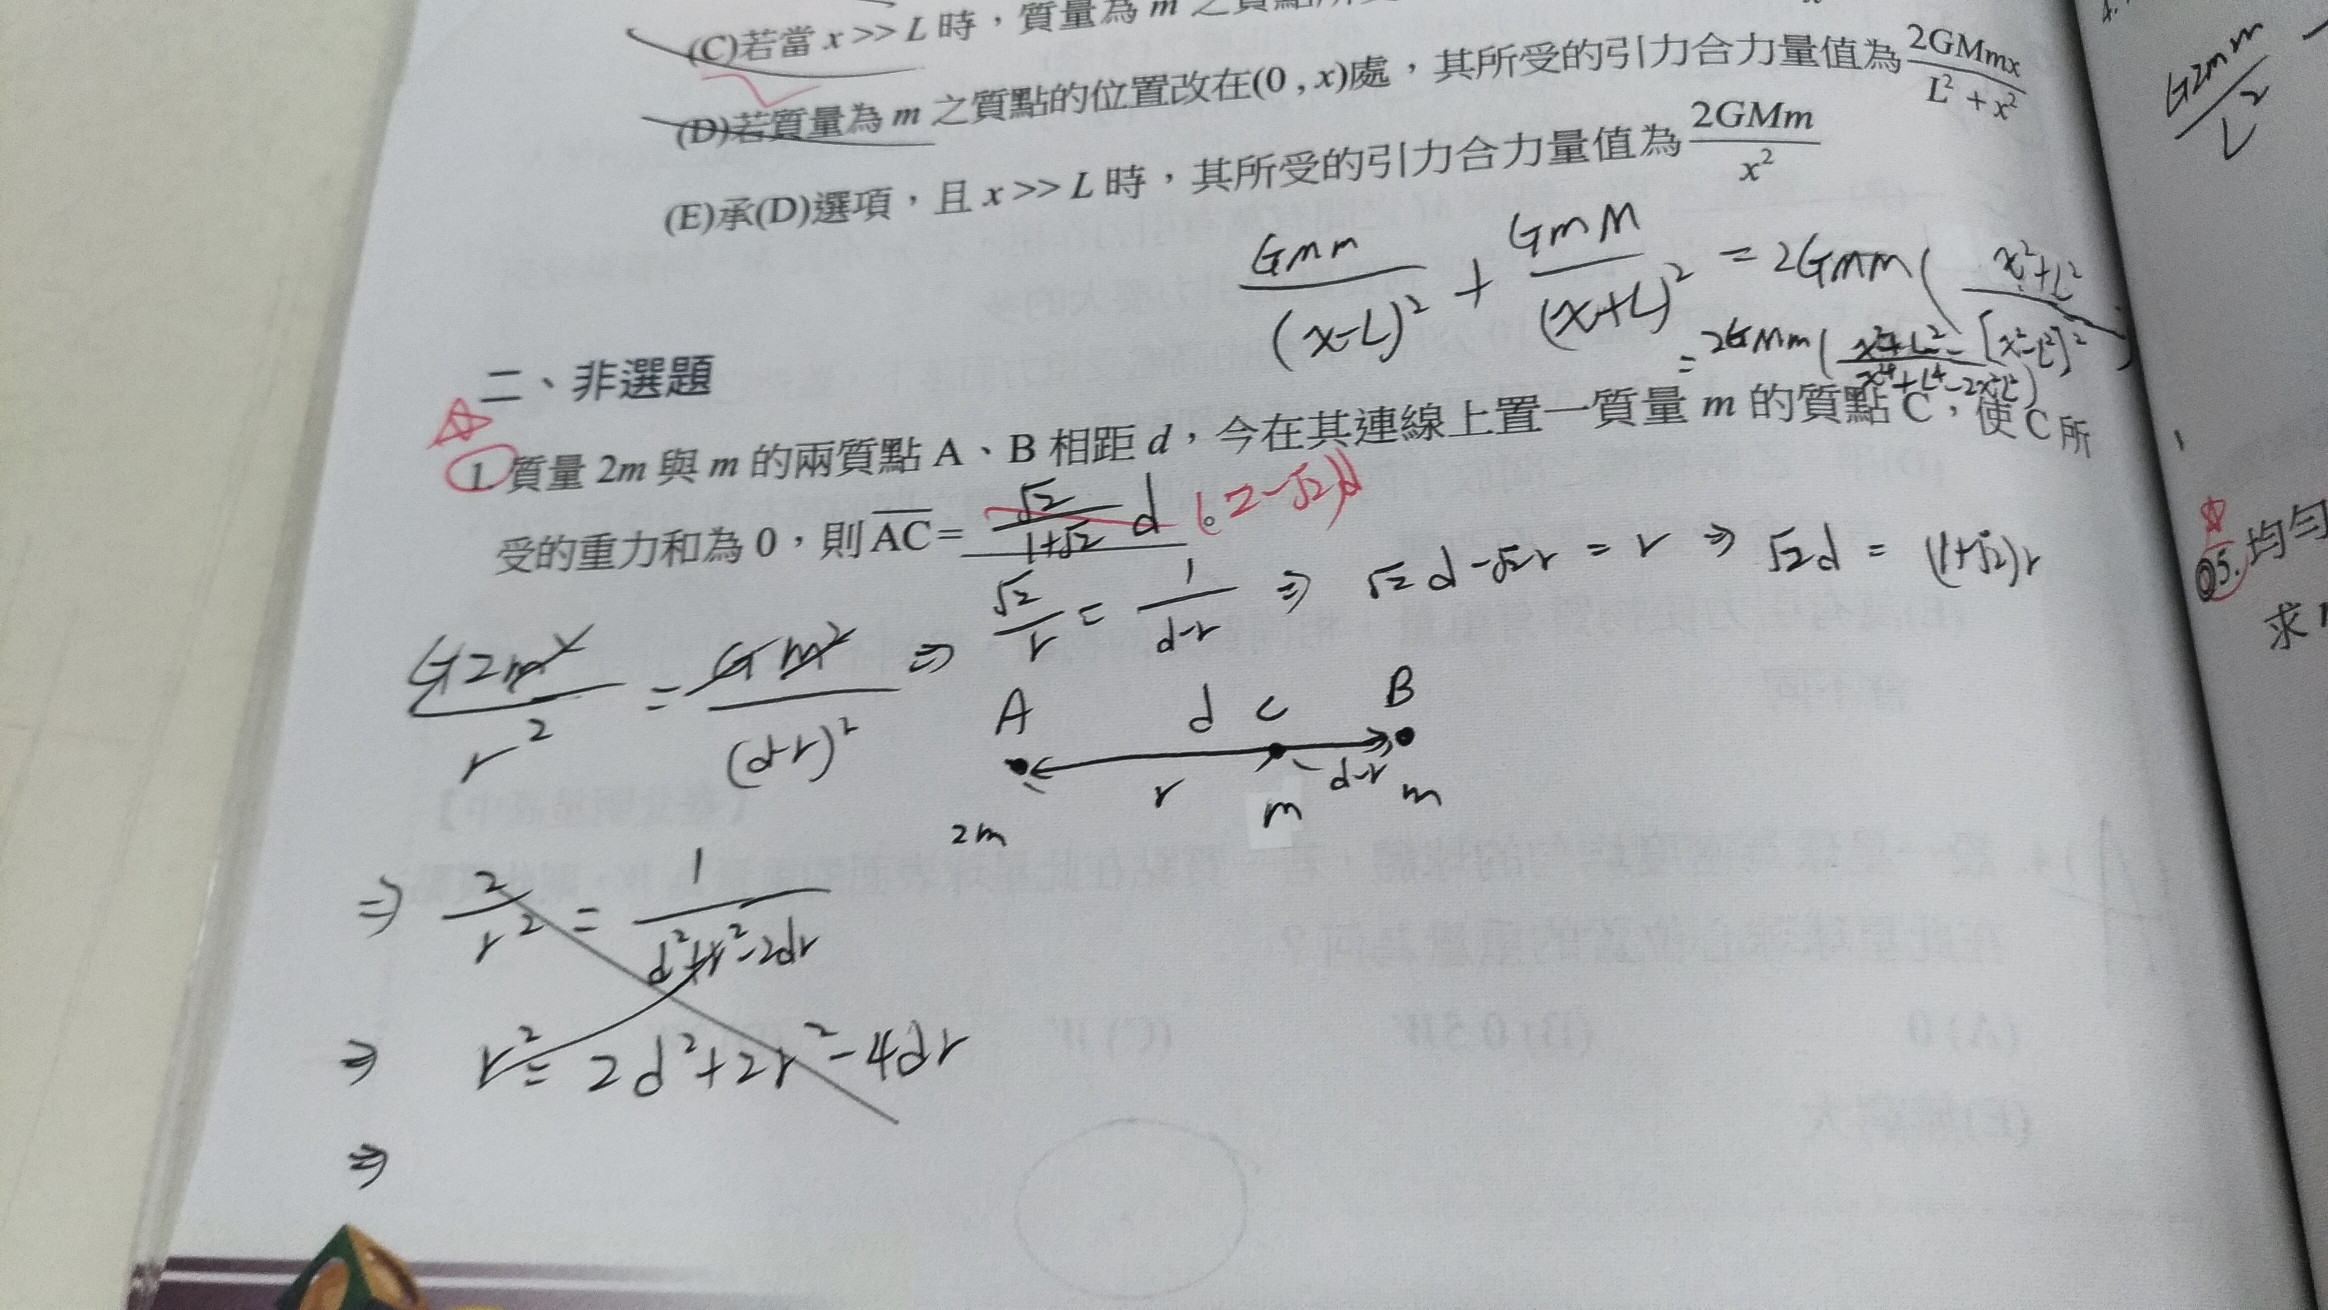 (C)若當 x >> L 時，質量為 m 之質點所受
(D)若質量為 m 之質點的位置改在(0 , x)處，其所受的引力合力量值為 2GMmx / L² + x²
(E)承(D)選項，且 x >> L 時，其所受的引力合力量值為 2GMm / x²
GMm / (x-L)² + GmM / (x+L)² = 2GMm( x²+L² / [x²-L²]²
= 2GMm( x²+L² / x⁴+L⁴-2x²L² )
二、非選題
1. 質量 2m 與 m 的兩質點 A、B 相距 d，今在其連線上置一質量 m 的質點 C，使 C 所
受的重力和為 0，則 AC = √2 / 1+√2 d 。 (2-√2)d
G2m² / r² = Gm² / (d-r)² ⇒ √2 / r = 1 / d-r ⇒ √2 d-√2 r = r ⇒ √2d = (1+√2)r
A d C B
r d-r
2m m m
⇒ 2 / r² = 1 / d²+r²-2dr
⇒ r² = 2d²+2r²-4dr
⇒
G2mm / L²
5. 均勻
求